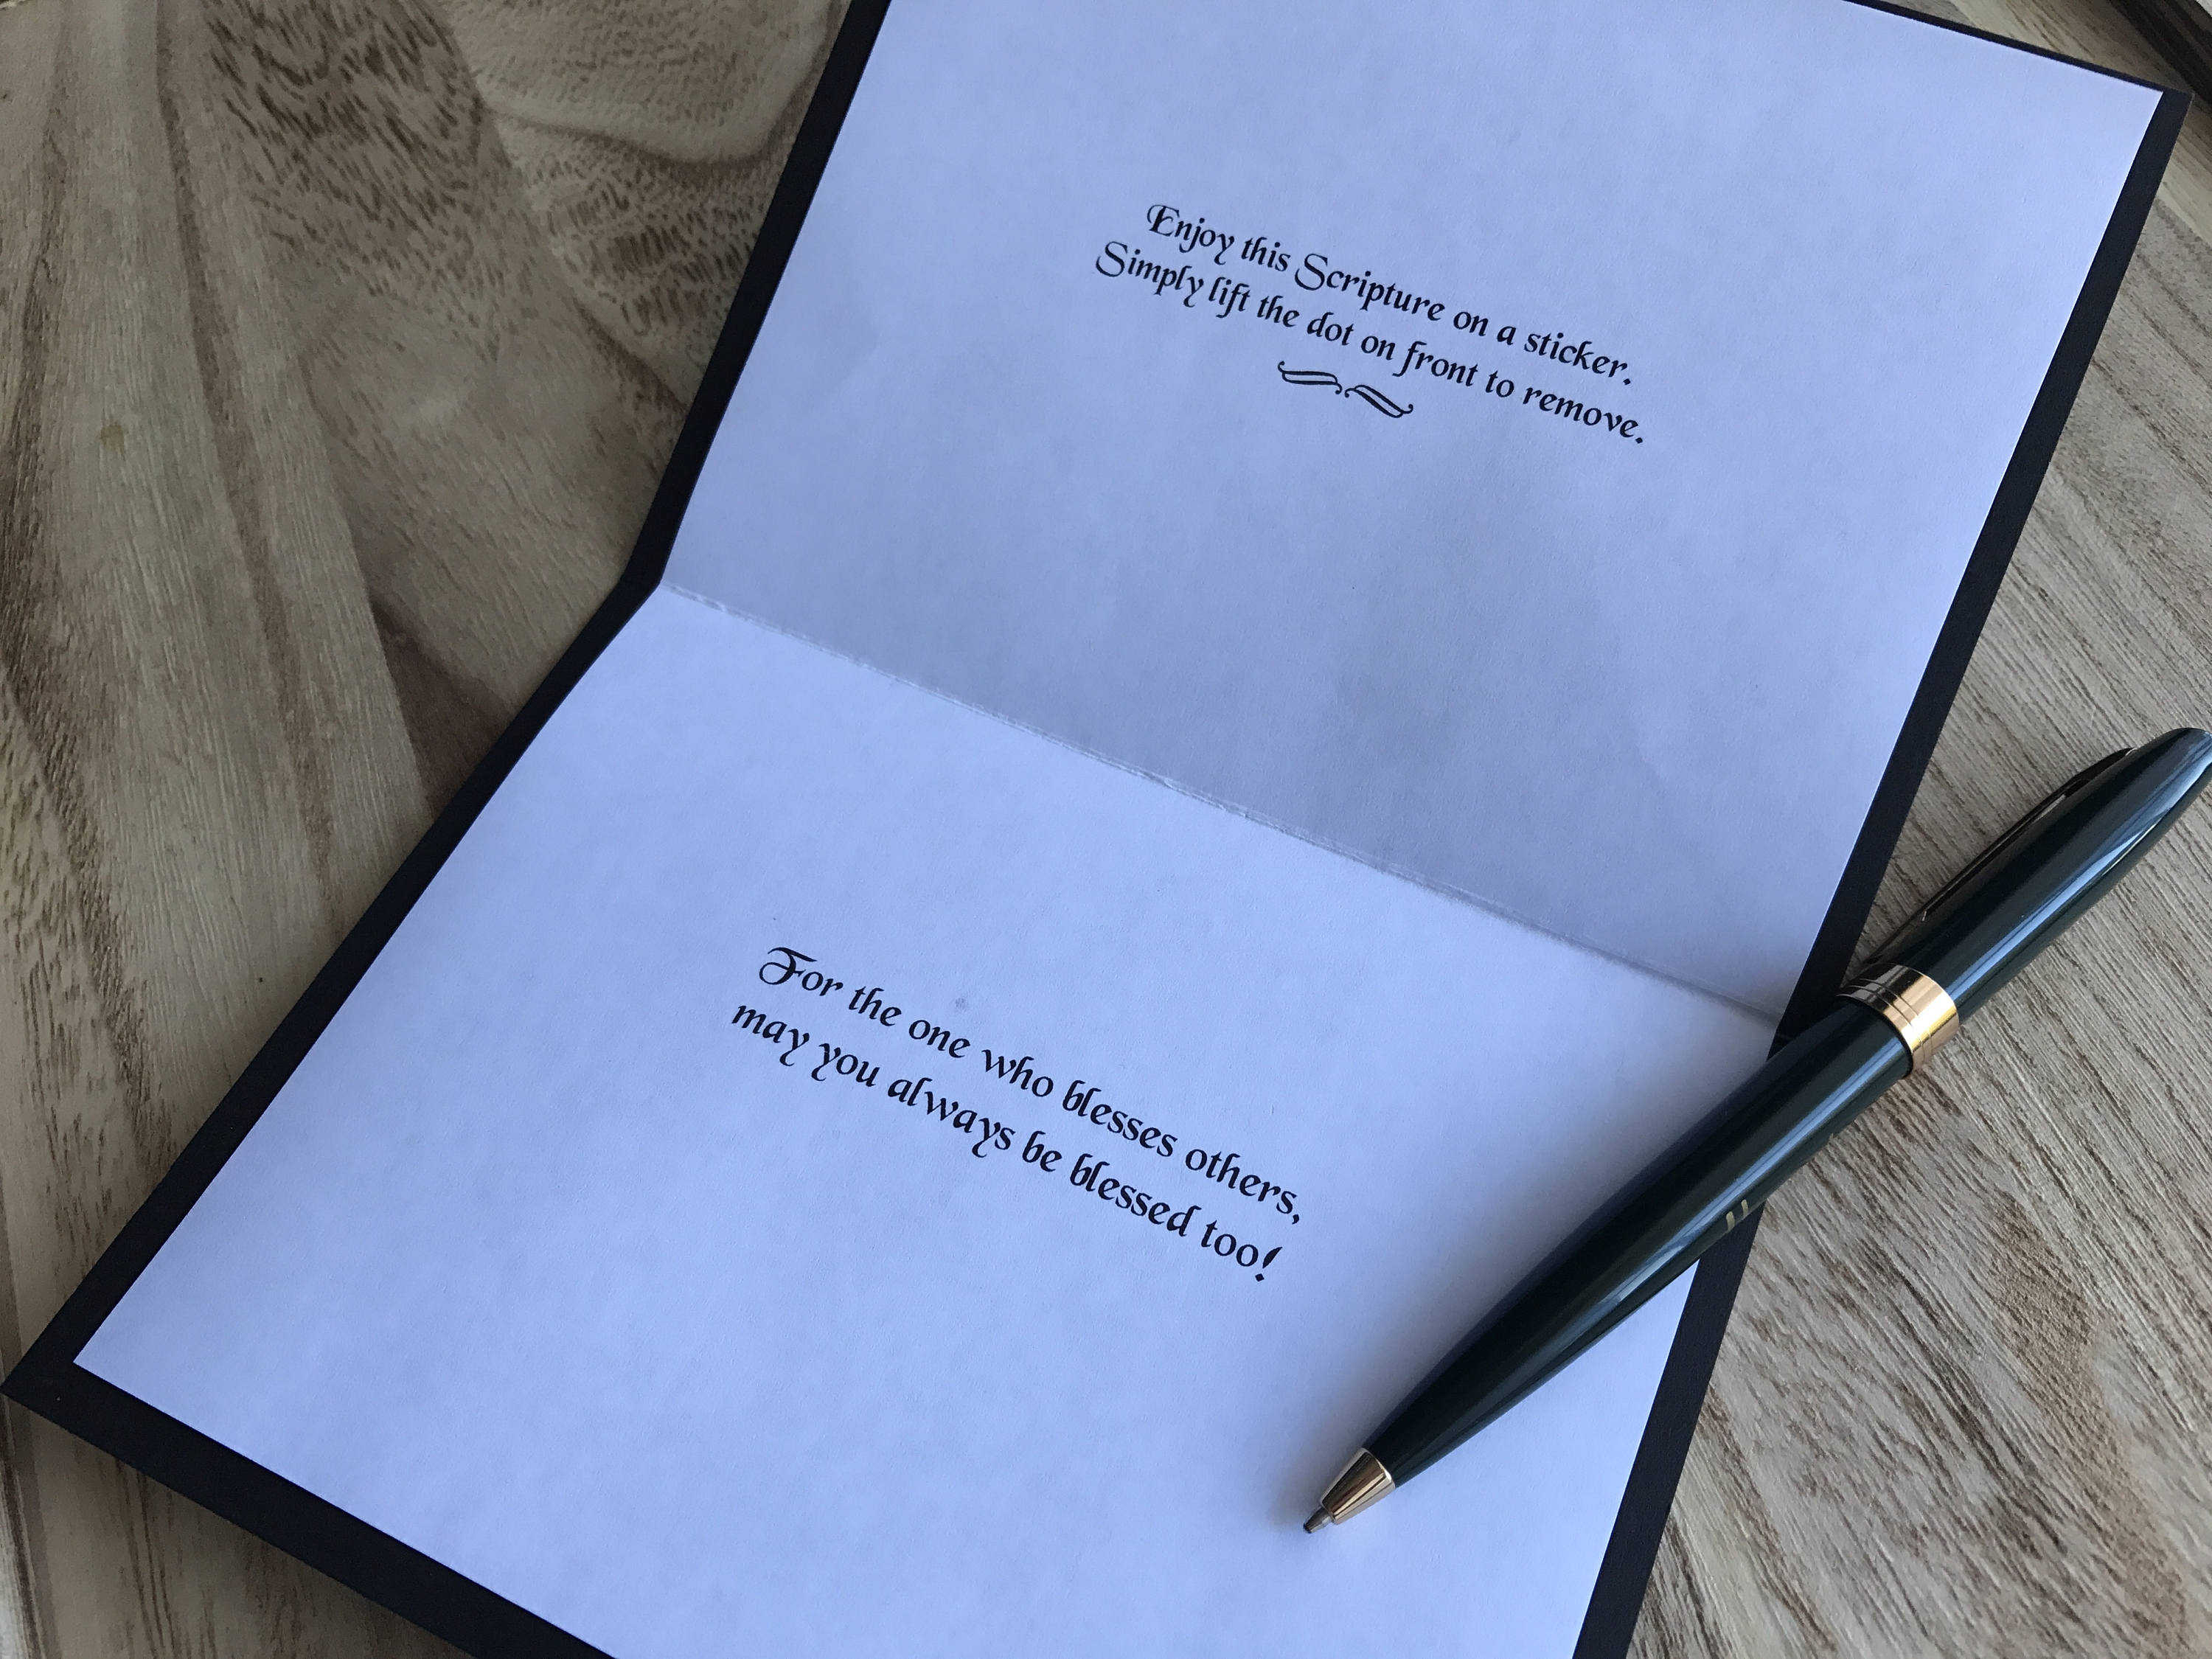 Enjoy this Scripture on a sticker.
Simply lift the dot on front to remove.
For the one who blesses others,
may you always be blessed too!